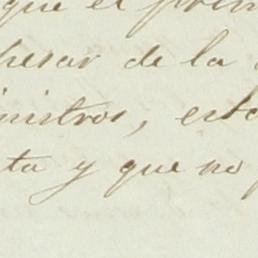 que el prim
pesar de la
inistros, esta
ta y que no